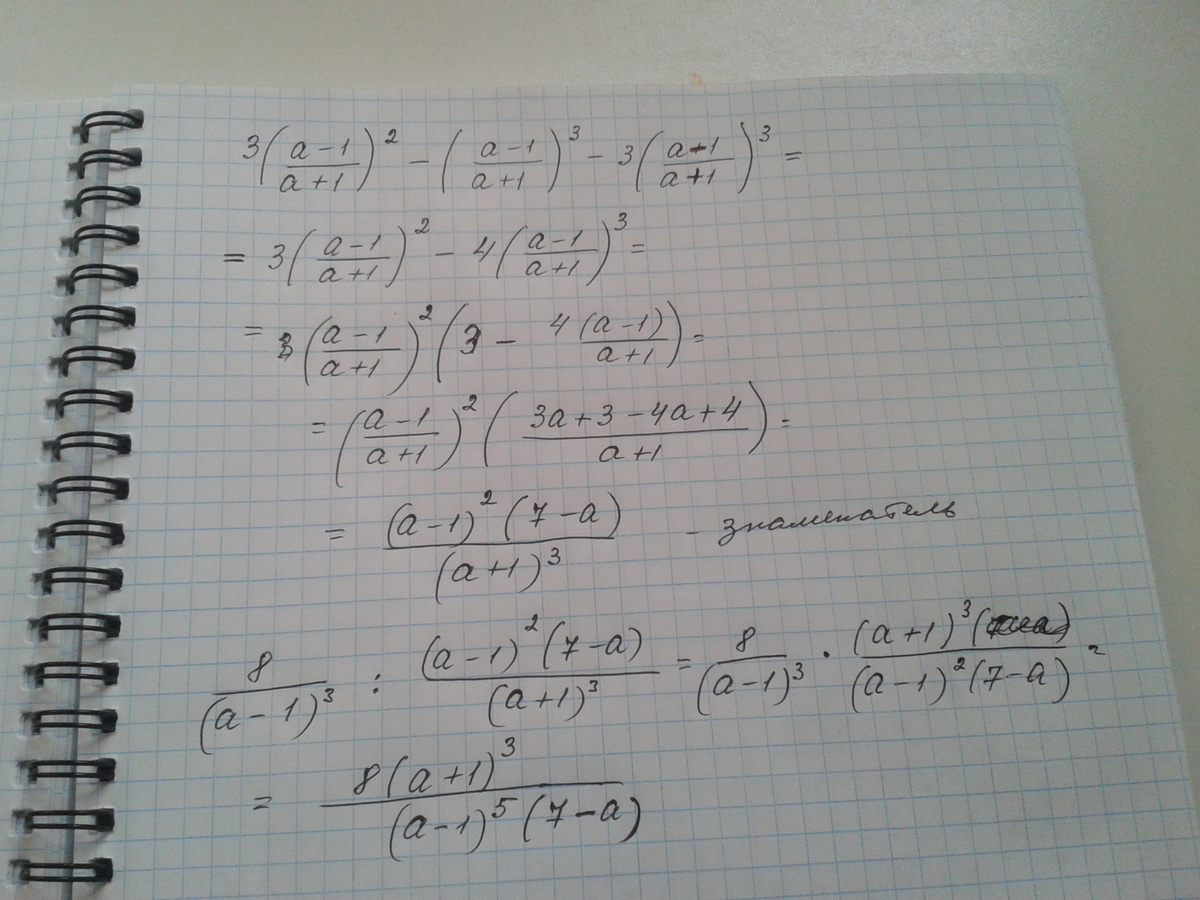 3((a-1)/(a+1))² - ((a-1)/(a+1))³ - 3((a-1)/(a+1))³ =
= 3((a-1)/(a+1))² - 4((a-1)/(a+1))³ =
= ((a-1)/(a+1))² (3 - 4(a-1)/(a+1)) =
= ((a-1)/(a+1))² ((3a+3-4a+4)/(a+1)) =
= (a-1)²(7-a)/(a+1)³ - знаменатель
8/(a-1)³ : (a-1)²(7-a)/(a+1)³ = 8/(a-1)³ · (a+1)³/((a-1)²(7-a)) =
= 8(a+1)³/((a-1)⁵(7-a))